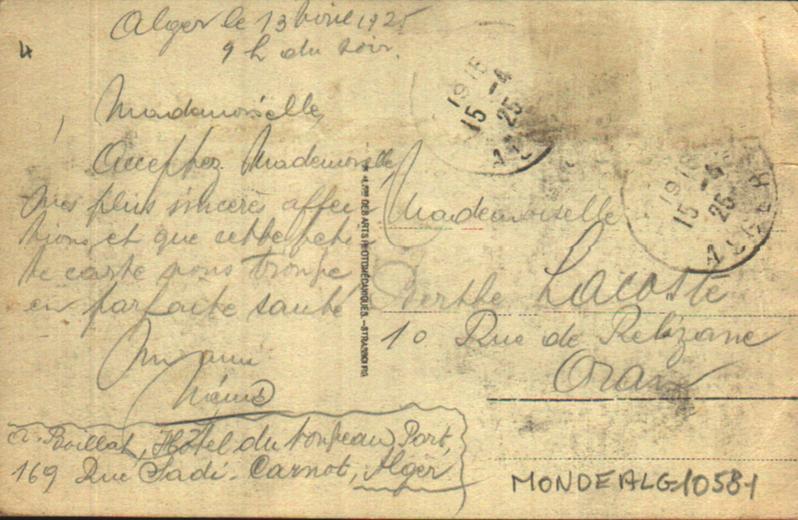 4
Alger le 13 Avril 1925
9 h du soir.
Mademoiselle,
Acceptez Mademoiselle,
mes plus sincères affec
tions, et que cette peti
te carte vous trouve
en parfaite santé
Un ami
R. Boillat, Hôtel du nouveau Port,
169 Rue Sadi-Carnot, Alger
DES ARTS PHOTOMÉCANIQUES. - STRASBOURG
19 15
15 -4
25
19 15
15 -4
25
ALGER
Mademoiselle
Berthe Lacoste
10 Rue de Relizane
Oran
MONDEALG10581